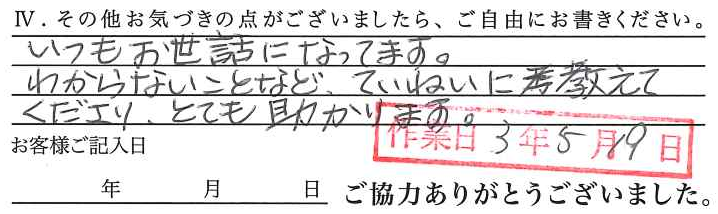 Ⅳ．その他お気づきの点がございましたら、ご自由にお書きください。
いつもお世話になってます。
わからないことなど、ていねいに教えて
くださり、とても助かります。
作業日 3年5月19日
お客様ご記入日
年 月 日 ご協力ありがとうございました。